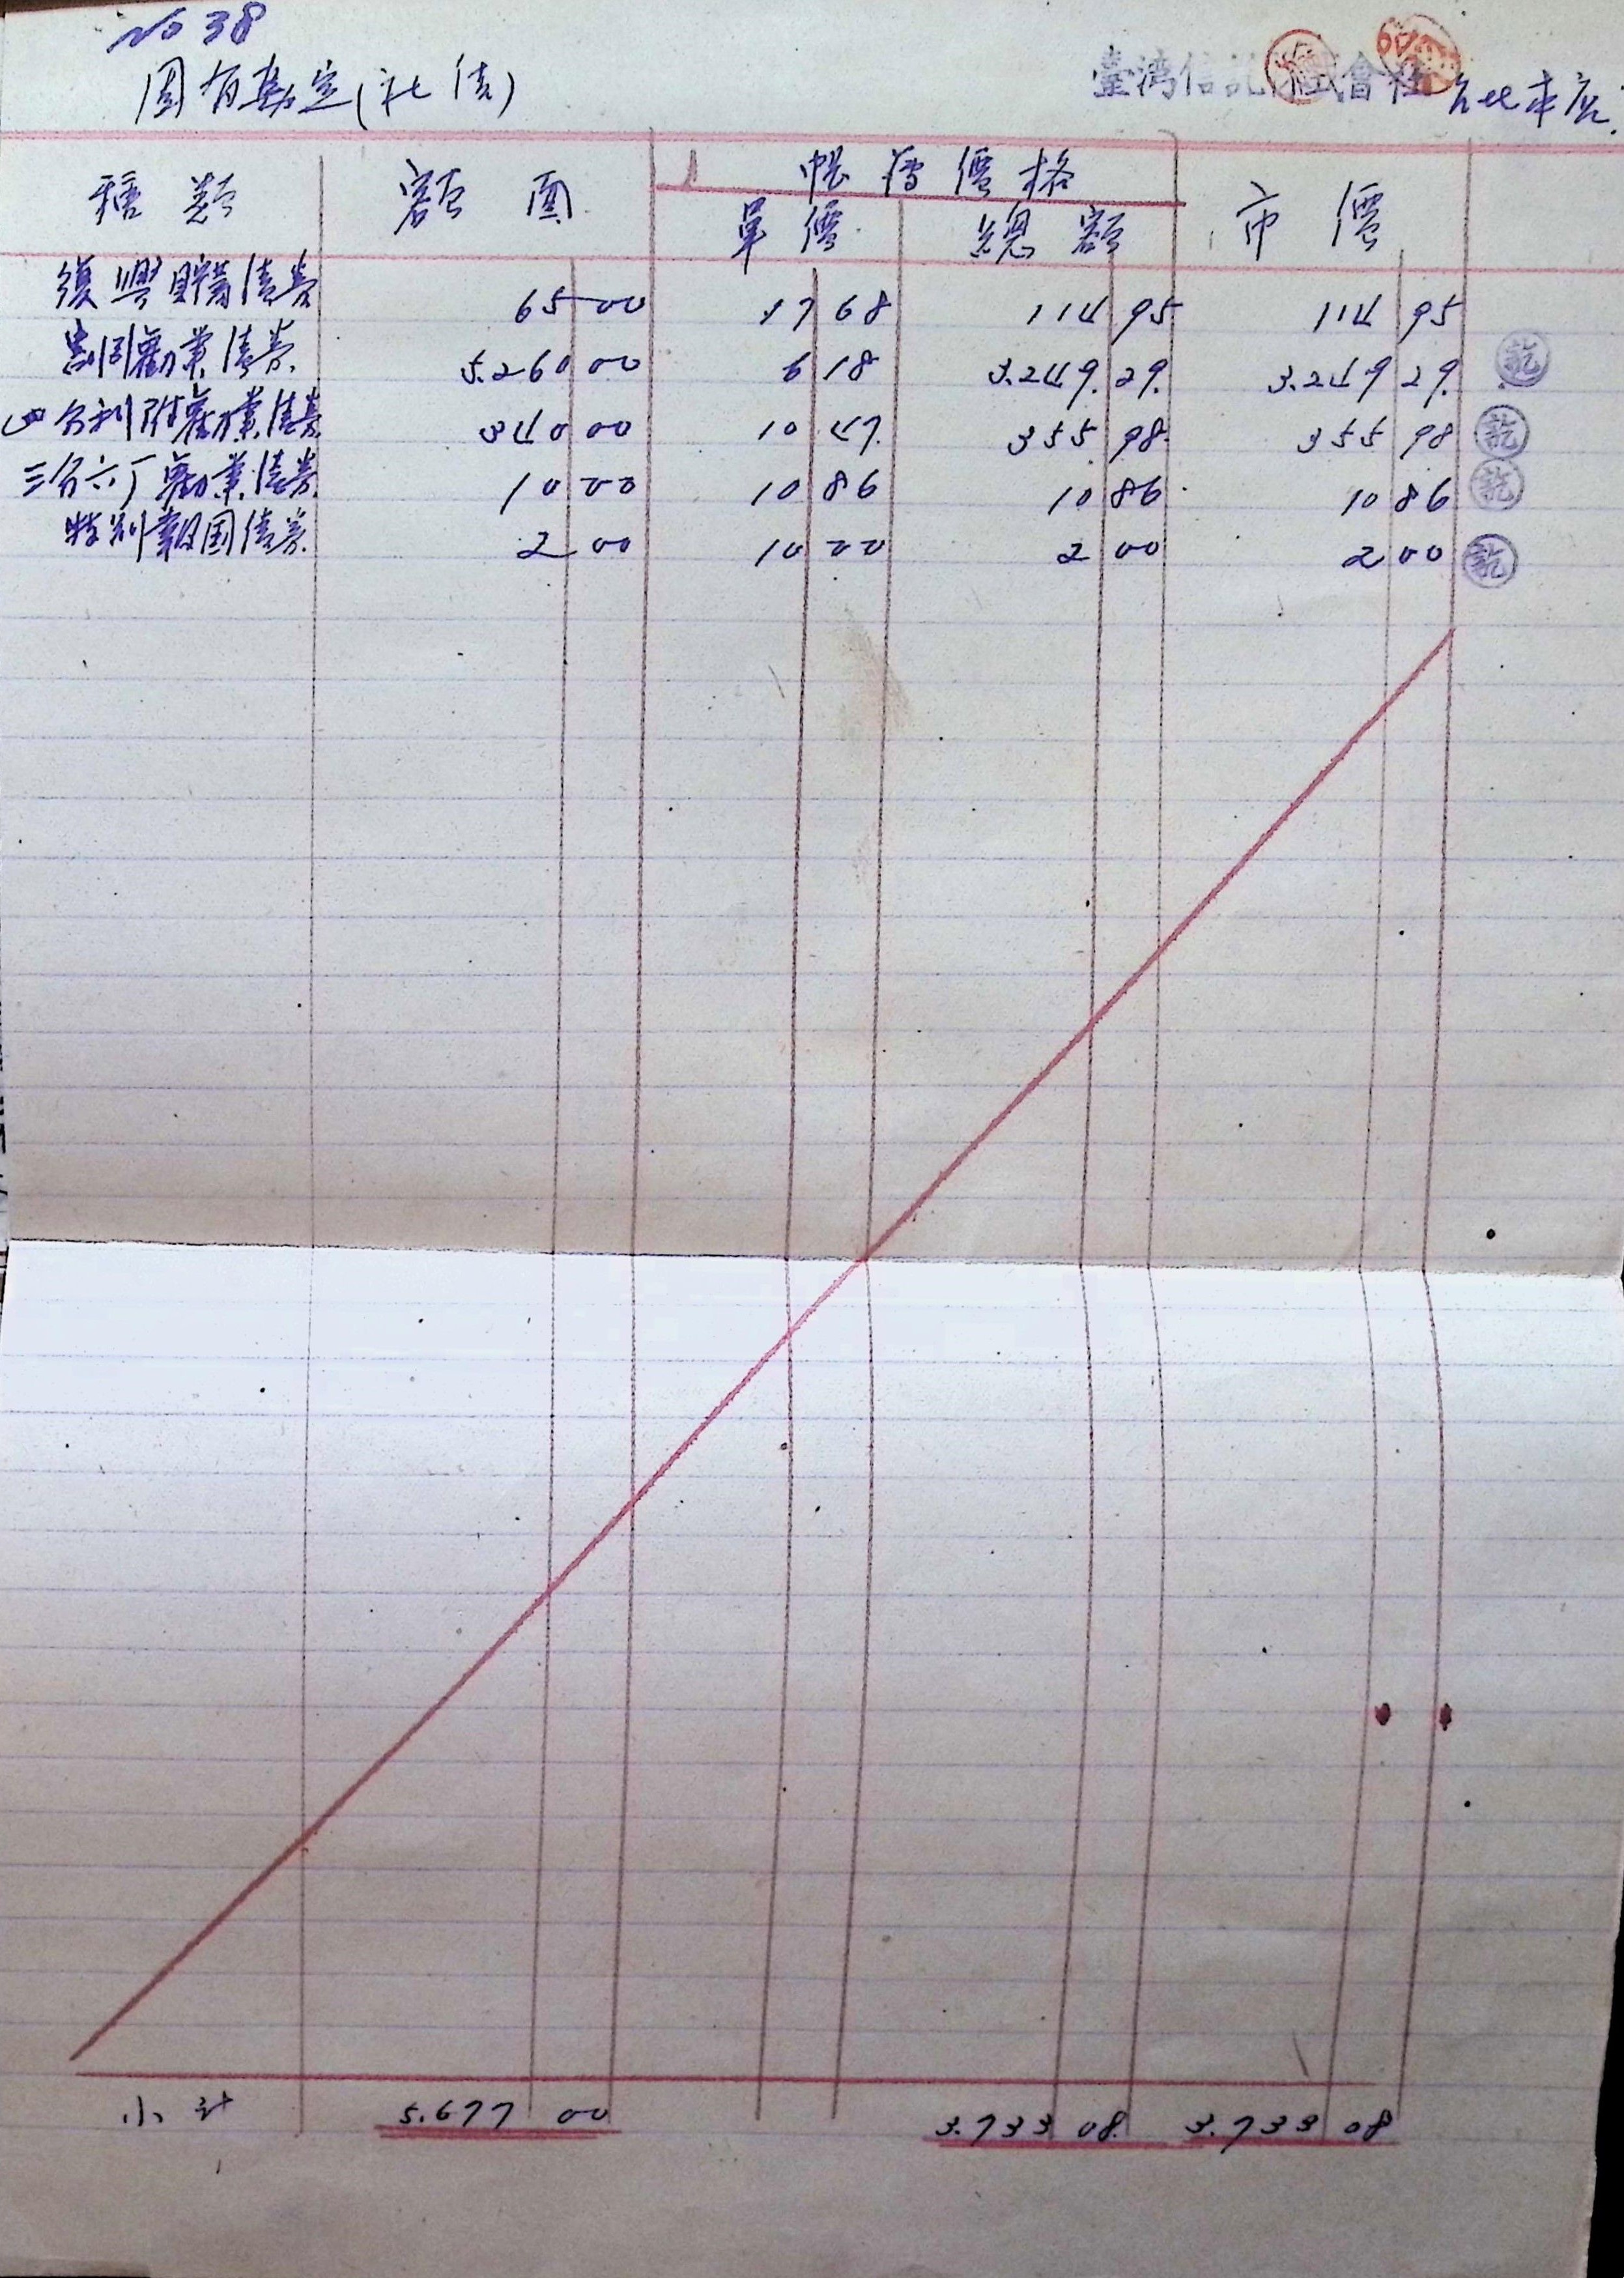 No 38
固有勘定(社債)
臺湾信託株式會社 台北本店.
種類 額面 帳簿價格 市價
單價 總額
復興貯蓄債券 65 00 17 68 114 95 114 95
割引勸業債券. 5.260 00 6 18 3.249. 29. 3.249 29.
四分利附勸業債券 340 00 10 47. 355 98. 355 98
三分六厂勸業債券. 10 00 10 86 10 86 10 86
特別報国債券. 2 00 10 00 2 00 2 00
小計 5.677 00 3.733 08. 3.733 08